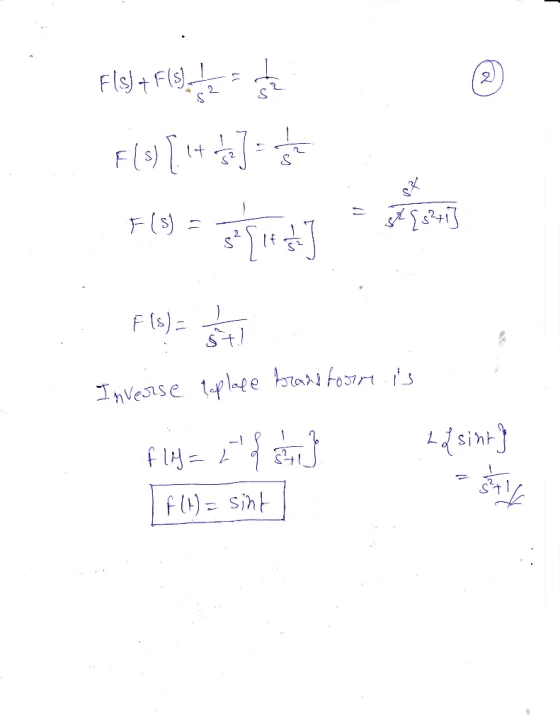 ②
F(s) + F(s) 1/s² = 1/s²
F(s) [1 + 1/s²] = 1/s²
F(s) = 1/(s² [1 + 1/s²]) = s²/(s² [s²+1])
F(s) = 1/(s²+1)
Inverse laplace transform is
f(t) = L⁻¹ { 1/(s²+1) }
L{sint}
f(t) = sint
= 1/(s²+1)